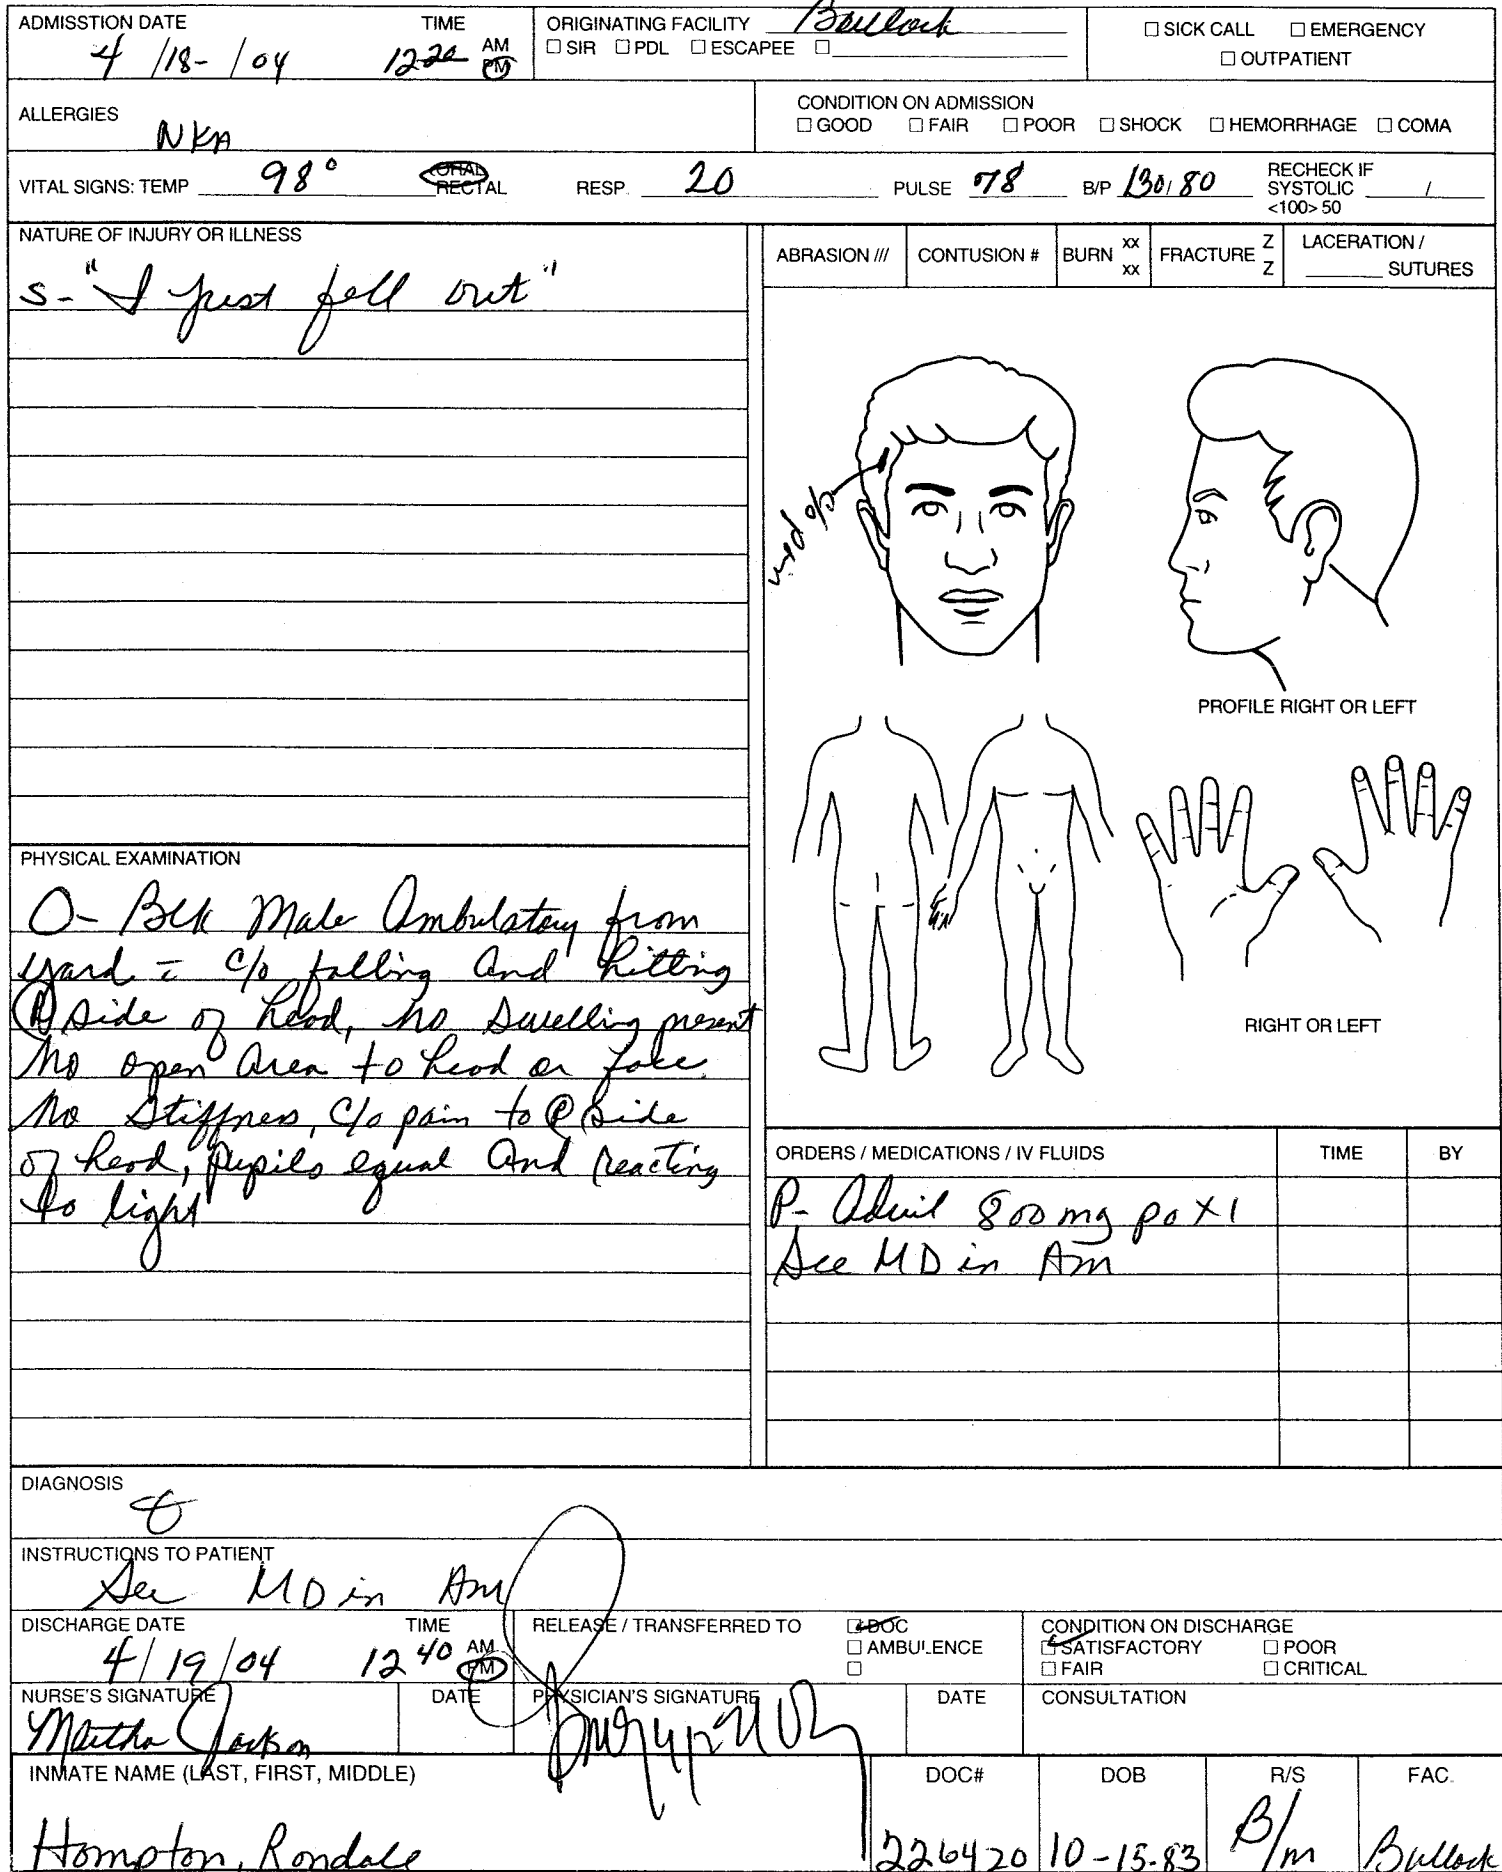 ADMISSTION DATE TIME ORIGINATING FACILITY Bullock
4 /18- /04 12 20 AM PM
☐ SIR ☐ PDL ☐ ESCAPEE ☐
☐ SICK CALL ☐ EMERGENCY
☐ OUTPATIENT
ALLERGIES NKA
CONDITION ON ADMISSION
☐ GOOD ☐ FAIR ☐ POOR ☐ SHOCK ☐ HEMORRHAGE ☐ COMA
VITAL SIGNS: TEMP 98° ORAL RECTAL RESP. 20 PULSE 78 B/P 130/80 RECHECK IF SYSTOLIC / <100> 50
NATURE OF INJURY OR ILLNESS
S- "I just fell out"
ABRASION /// CONTUSION # BURN xx xx FRACTURE Z Z LACERATION / SUTURES
PROFILE RIGHT OR LEFT
RIGHT OR LEFT
PHYSICAL EXAMINATION
O- Blk Male Ambulatory from
yard c/o falling and hitting
R side of head, no swelling present
No open area to head or face.
No stiffness, c/o pain to R side
of head, pupils equal and reacting
to light
ORDERS / MEDICATIONS / IV FLUIDS TIME BY
P- Advil 800 mg po x 1
See MD in Am
DIAGNOSIS
INSTRUCTIONS TO PATIENT
See MD in Am
DISCHARGE DATE TIME
4/19/04 12 40 AM PM
RELEASE / TRANSFERRED TO ☐ DOC
☐ AMBULENCE
☐
CONDITION ON DISCHARGE
☐ SATISFACTORY ☐ POOR
☐ FAIR ☐ CRITICAL
NURSE'S SIGNATURE DATE PHYSICIAN'S SIGNATURE DATE CONSULTATION
Martha Jackson
INMATE NAME (LAST, FIRST, MIDDLE) DOC# DOB R/S FAC.
Hompton, Rondale 226420 10-15-83 B/m Bullock